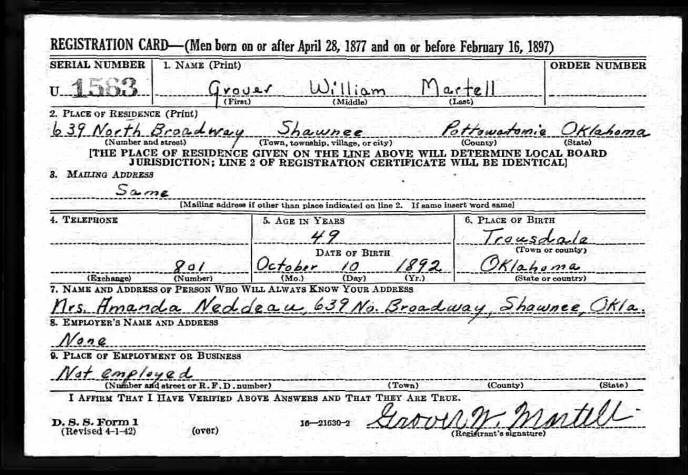 REGISTRATION CARD—(Men born on or after April 28, 1877 and on or before February 16, 1897)
SERIAL NUMBER 1. NAME (Print) ORDER NUMBER
U 1563 Grover William Martell
(First) (Middle) (Last)
2. PLACE OF RESIDENCE (Print)
639 North Broadway Shawnee Pottowatomie Oklahoma
(Number and street) (Town, township, village, or city) (County) (State)
[THE PLACE OF RESIDENCE GIVEN ON THE LINE ABOVE WILL DETERMINE LOCAL BOARD
JURISDICTION; LINE 2 OF REGISTRATION CERTIFICATE WILL BE IDENTICAL]
3. MAILING ADDRESS
Same
[Mailing address if other than place indicated on line 2. If same insert word same]
4. TELEPHONE 5. AGE IN YEARS 6. PLACE OF BIRTH
49 Trousdale
DATE OF BIRTH (Town or county)
801 October 10 1892 Oklahoma
(Exchange) (Number) (Mo.) (Day) (Yr.) (State or country)
7. NAME AND ADDRESS OF PERSON WHO WILL ALWAYS KNOW YOUR ADDRESS
Mrs. Amanda Neddeau, 639 No. Broadway, Shawnee, Okla.
8. EMPLOYER'S NAME AND ADDRESS
None
9. PLACE OF EMPLOYMENT OR BUSINESS
Not employed
(Number and street or R. F. D. number) (Town) (County) (State)
I AFFIRM THAT I HAVE VERIFIED ABOVE ANSWERS AND THAT THEY ARE TRUE.
D. S. S. Form 1 Grover W. Martell
(Revised 4-1-42) (over) 16—21630-2 (Registrant's signature)